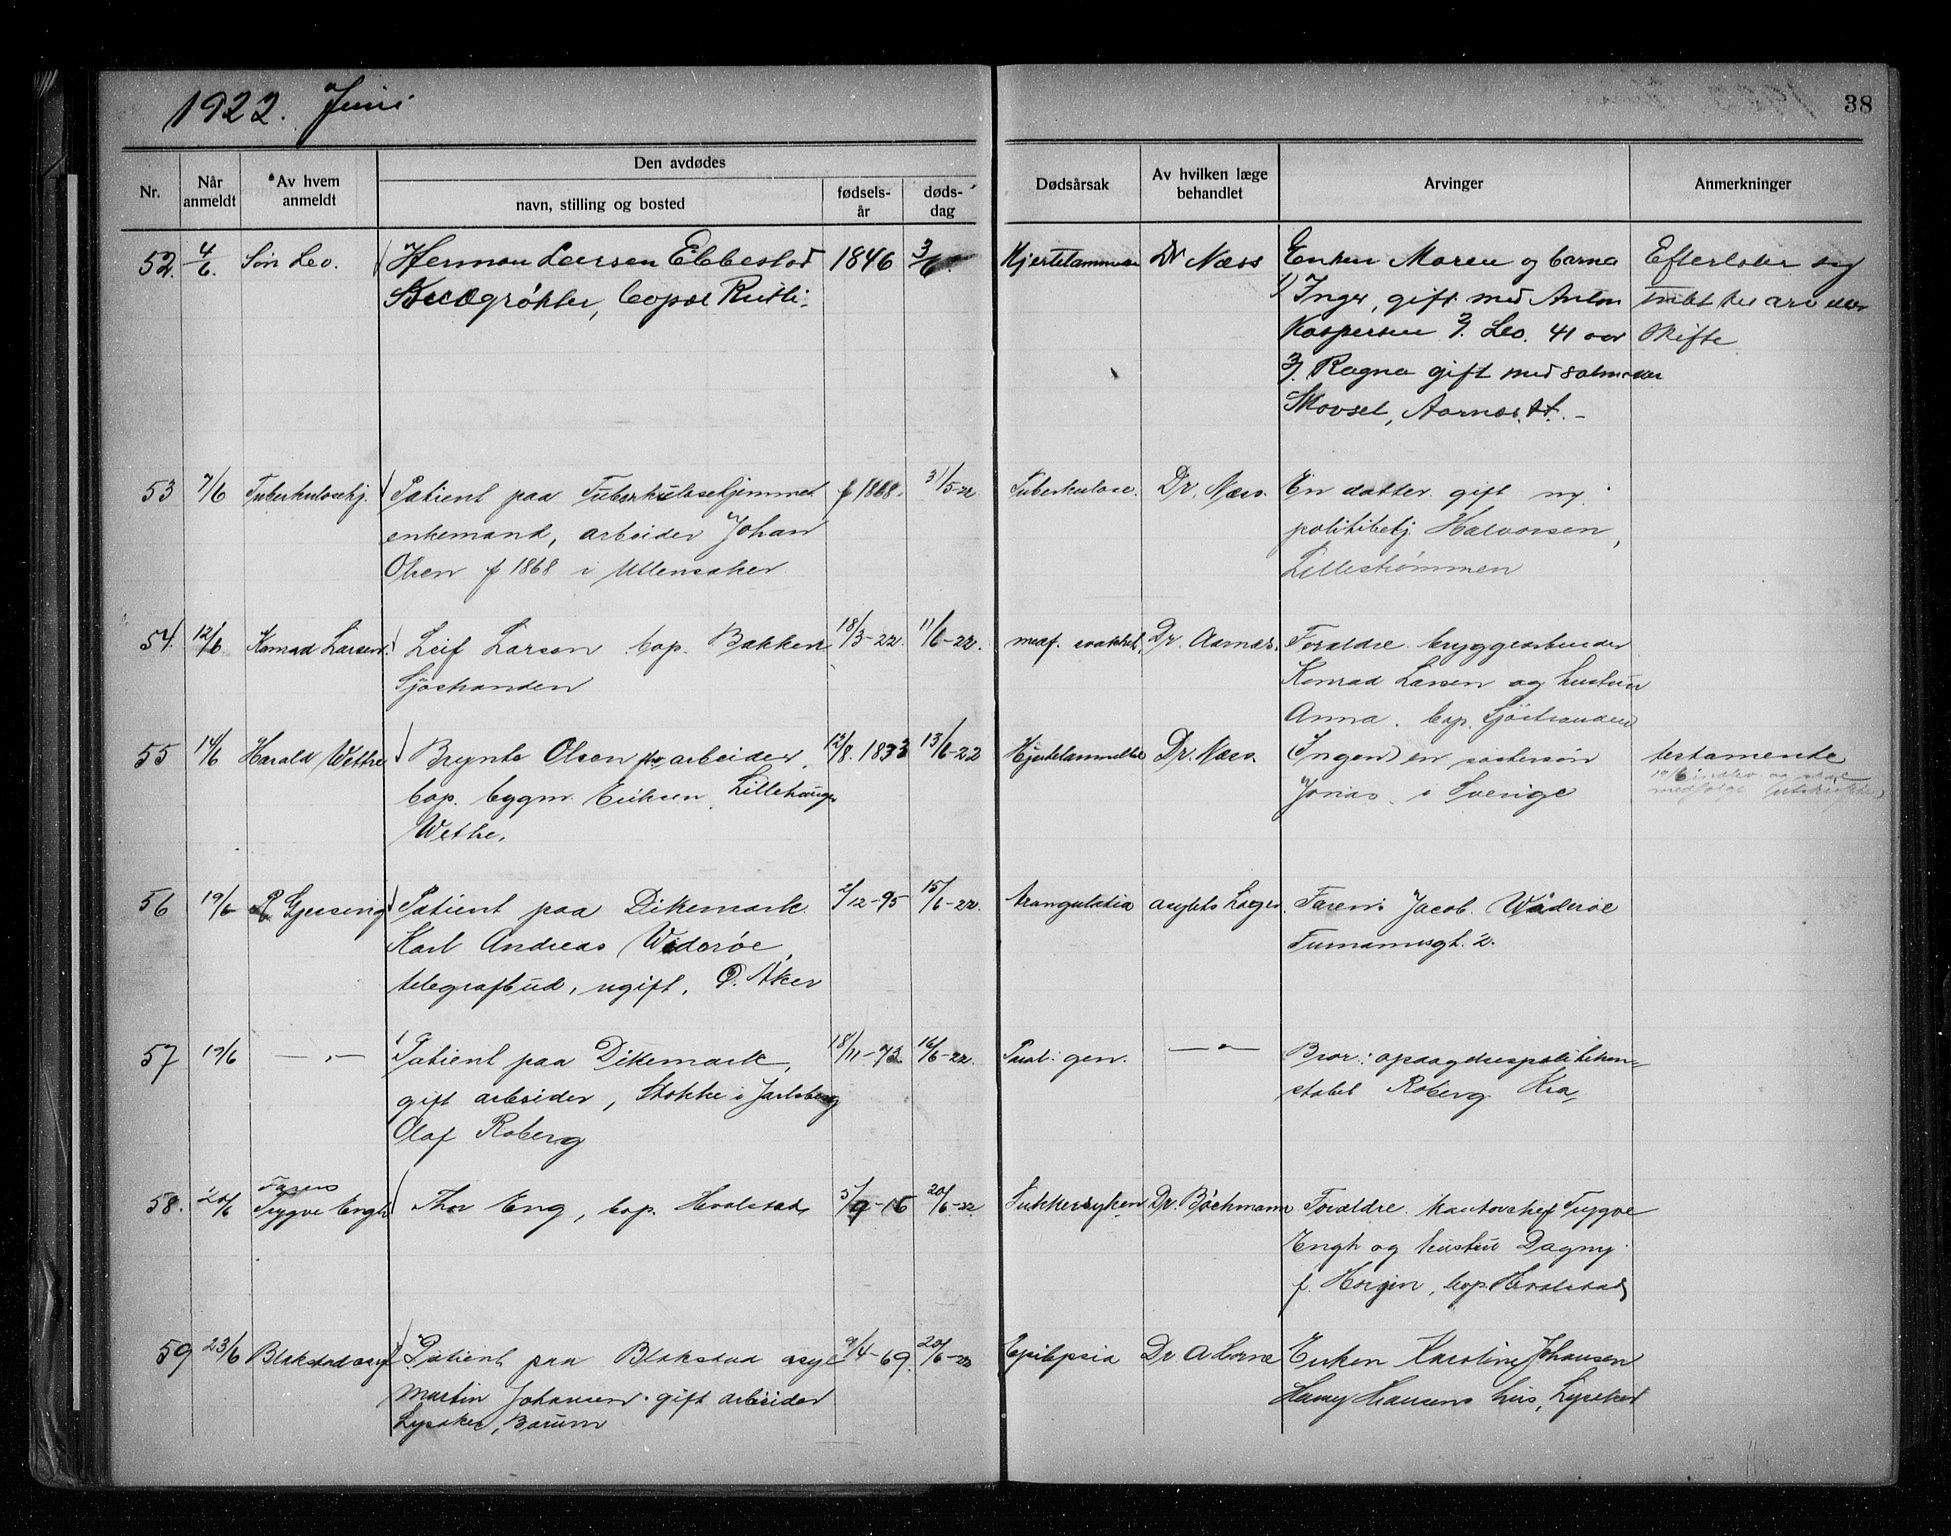 1922. Juni
38
Nr.
Når anmeldt
Av hvem anmeldt
Den avdødes
navn, stilling og bosted
fødsels-år
døds-dag
Dødsårsak
Av hvilken læge behandlet
Arvinger
Anmerkninger
52. 4/6. Søn Leo. Herman Larsen Ebbestad 1846 3/6 Hjertelammelse Dr Næss Enken Maren og barna Efterlater sig
bopæl 1) Inger, gift med Anton intet
Kaspersen 2). Leo. 41 aar skifte
3). Ragna gift med
Aarnæs st. -
53 7/6 Tuberkulosehj. Patient paa Tuberkulosehjemmet f 1868. 31/5-22 Tuberkulose. Dr. Næss. En datter gift m.
enkemand, arbeider Johan politibetj. Halvorsen,
Olsen f 1868 i Ullensaker Lillestrømmen
54. 12/6. Konrad Larsen. Leif Larsen bop. Bakken 18/3-22. 11/6-22. medf. svakhet. Dr. Aarnæs. Forældre bryggearbeider
Sjøstranden Konrad Larsen og hustru
Anna. bop. Sjöstranden
55 14/6 Harald Wettre Brynte Olsen arbeider 12/8. 1833 13/6-22 Hjertelammelse Dr. Næss. Ingen) en søstersøn testamente
bop. bygm. Eriksen, Lillehauger Jonas i Sverige
Wettre. medfølge utskrift
56 19/6 R Gjessing Patient paa Dikemark 2/12-95 15/6-22. Strangulatia asylets Læger. Faren: Jacob Wåderøe
Karl Andreas Widerøe, 2.
telegrafbud, ugift, Ø. Aker
57 19/6 — „ — Patient paa Dikemark, 18/11-73 16/6-22. Paral. gen. — „ — Bror: opdagelsespolitikon-
gift arbeider, Stokke i Jarlsberg stabel Roberg Kra,
Olaf Roberg
58. 20/6 Faren
Trygve Engh Thor Eng, bop. Hvalstad, 5/9-15 20/6-22. Sukkersyken Dr. Bøchmann Forældre kontorchef Trygve
Engh og hustru Dagny
f. Horgen, bop. Hvalstad
59 23/6 Blakstad asyl. Patient paa Blakstad asyl 9/4-69. 20/6-22 Epilepsia Dr Enken Karoline Johansen
Martin Johansen. gift arbeider Harry Hansens hus, Lysaker
Lysaker, Bærum